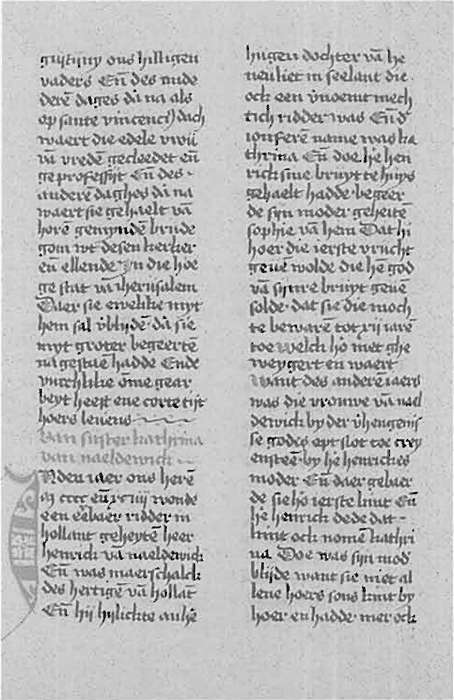 ons hilligen
vaders Eñ des ande
derē dages dā na als
op sante vincencꝰ dach
waert die edele vrou
vā vredē gecleedet eñ
ge professijt Eñ des
anderē daghes dā na
waert sie gehaelt vā
horē gemyndē brude
gom wt desen kerker
eñ ellende In die hoe
ge stat vā iherusalem
Daer sie ewelike myt
hem sal v̄blidē dā sie
myt groter begeertē
na gestaē hadde Ende
vurichlike ome gear
beyt heeft ene corte tijt
hoers levens
Van suster kathrina
van naeldewick
INden iaer ons herē
M cccc wonde
een eēbaer ridder in
hollant geheytē heer
henrick vā naeldewick
Eñ was maerschalck
des hertigē vā hollāt
Eñ hij hijlickte anhē
hugen dochter vā he
uenliet in seelant die
ock een v̄noemt mech
tich ridder was Eñ d
ionferē name was ka
thrina Eñ doe he hen
rick sine bruyt te huys
gehaelt hadde begeer
de sijn moder geheitē
sophie vā hem Dat hi
hoer die ierste vrucht
geuē wolde die hē god
vā sijnre bruyt geuē
solde dat sie die moch
te bewarē tot rij iarē
toe welch hō niet ghe
weygert en waert
Want des anderē iaers
was die vrouwe vā nael
dewick by der v̄hengenis
se godes opt slot toe crey
ensteē by he henrickes
moder Eñ daer gebaer
de sie hō ierste kint Eñ
he henrick dede dat
kint ock nomē kathri
na Doe was sijn mod̄
blijde want sie niet al
lene hoers sons kint by
hoer en hadde mer ock